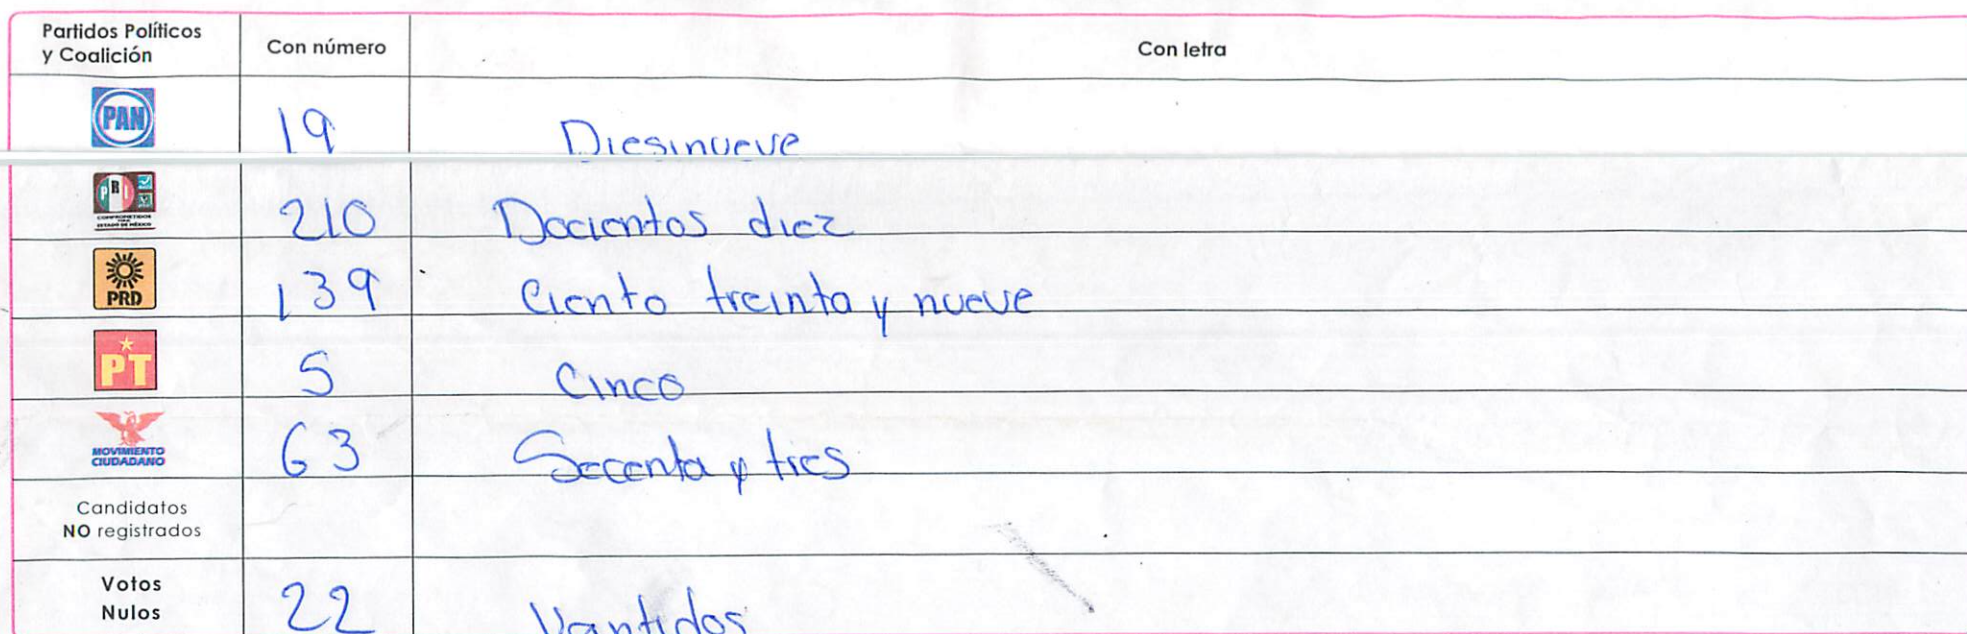 Partidos Políticos y Coalición Con número Con letra
PAN 19 Diesinueve
PRI COMPROMETIDOS ESTADO DE MÉXICO 210 Docientos diez
PRD 139 Ciento treinta y nueve
PT 5 Cinco
MOVIMIENTO CIUDADANO 63 Secenta y tres
Candidatos NO registrados
Votos Nulos 22 Vantidos